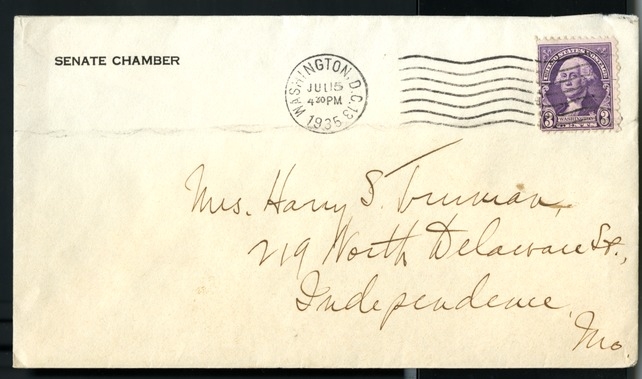 SENATE CHAMBER
WASHINGTON, D.C. 13
JUL 15
4 30 PM
1935
UNITED STATES POSTAGE
WASHINGTON
3 CENTS 3
Mrs. Harry S. Truman,
219 North Delaware St.,
Independence,
Mo.